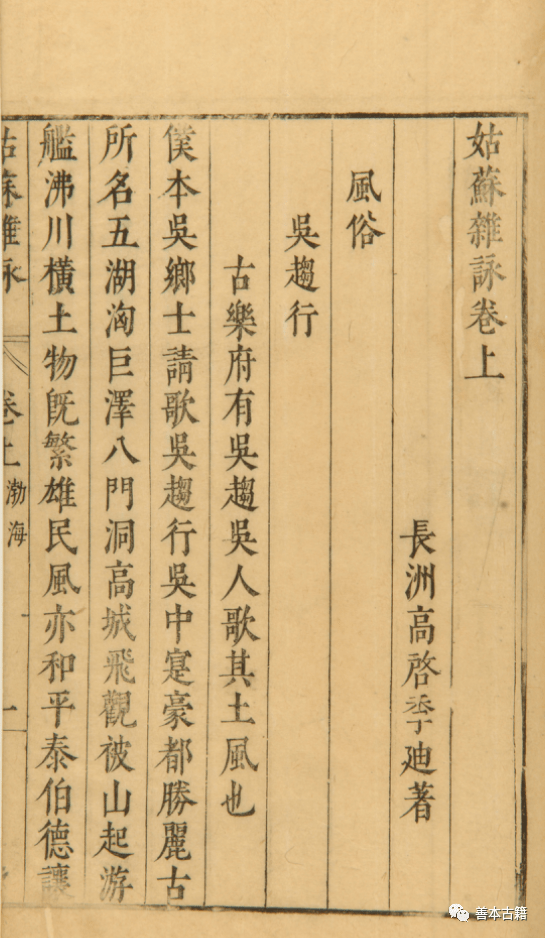 姑蘇雜詠卷上
長洲高啓季迪著
風俗
吳趨行
古樂府有吳趨吳人歌其土風也
僕本吳鄉士請歌吳趨行吳中寔豪都勝麗古
所名五湖洶巨澤八門洞高城飛觀被山起游
艦沸川橫土物旣繁雄民風亦和平泰伯德讓
姑蘇雜詠 卷上 渤海 一
善本古籍